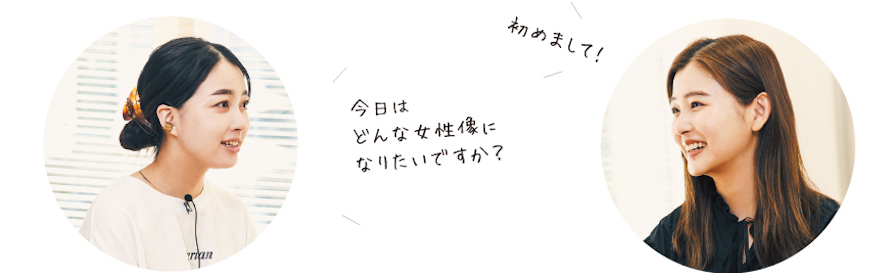 初めまして!
今日は
どんな女性像に
なりたいですか?